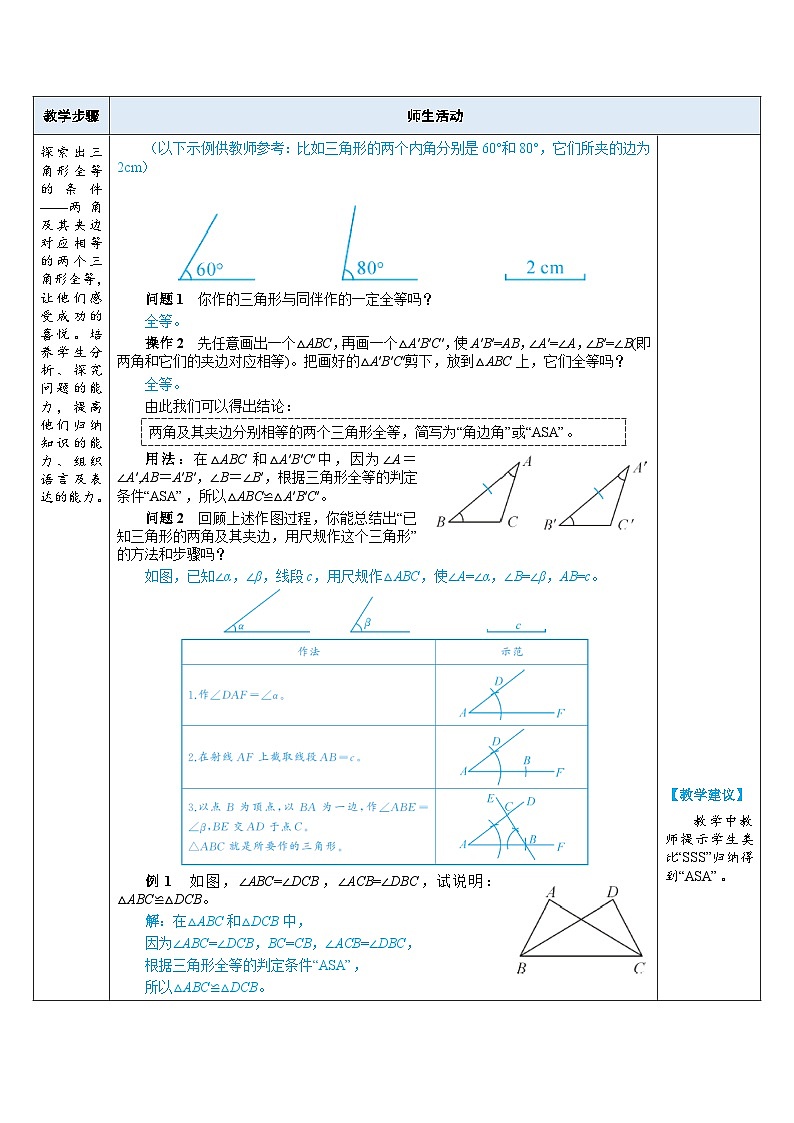 教学步骤
师生活动
探索出三
角形全等
的条件
——两角
及其夹边
对应相等
的两个三
角形全等，
让他们感
受成功的
喜悦。培
养学生分
析、探究
问题的能
力，提高
他们归纳
知识的能
力、组织
语言及表
达的能力。
（以下示例供教师参考：比如三角形的两个内角分别是 60°和 80°，它们所夹的边为
2cm）
60°
80°
2 cm
问题1 你作的三角形与同伴作的一定全等吗？
全等。
操作2 先任意画出一个△ABC，再画一个△A′B′C′，使 A′B′=AB，∠A′=∠A，∠B′=∠B(即
两角和它们的夹边对应相等)。把画好的△A′B′C′剪下，放到△ABC 上，它们全等吗？
全等。
由此我们可以得出结论：
两角及其夹边分别相等的两个三角形全等，简写为“角边角”或“ASA”。
用法：在△ABC 和△A′B′C′中，因为∠A＝
∠A′,AB＝A′B′，∠B＝∠B′，根据三角形全等的判定
条件“ASA”，所以△ABC≌△A′B′C′。
A
B
C
A′
B′
C′
问题2 回顾上述作图过程，你能总结出“已
知三角形的两角及其夹边，用尺规作这个三角形”
的方法和步骤吗？
如图，已知∠α，∠β，线段 c，用尺规作△ABC，使∠A=∠α，∠B=∠β，AB=c。
α
β
c
作法
示范
1.作∠DAF＝∠α。
D
A
F
2.在射线 AF 上截取线段 AB＝c。
D
B
A
F
3.以点 B 为顶点,以 BA 为一边,作∠ABE＝
∠β,BE 交 AD 于点 C。
△ABC 就是所要作的三角形。
E
C
D
A
B
F
例1 如图，∠ABC=∠DCB，∠ACB=∠DBC，试说明：
△ABC≌△DCB。
解：在△ABC 和△DCB 中，
因为∠ABC=∠DCB，BC=CB，∠ACB=∠DBC，
根据三角形全等的判定条件“ASA”，
所以△ABC≌△DCB。
A
D
B
C
【教学建议】
教学中教
师提示学生类
比“SSS”归纳得
到“ASA”。